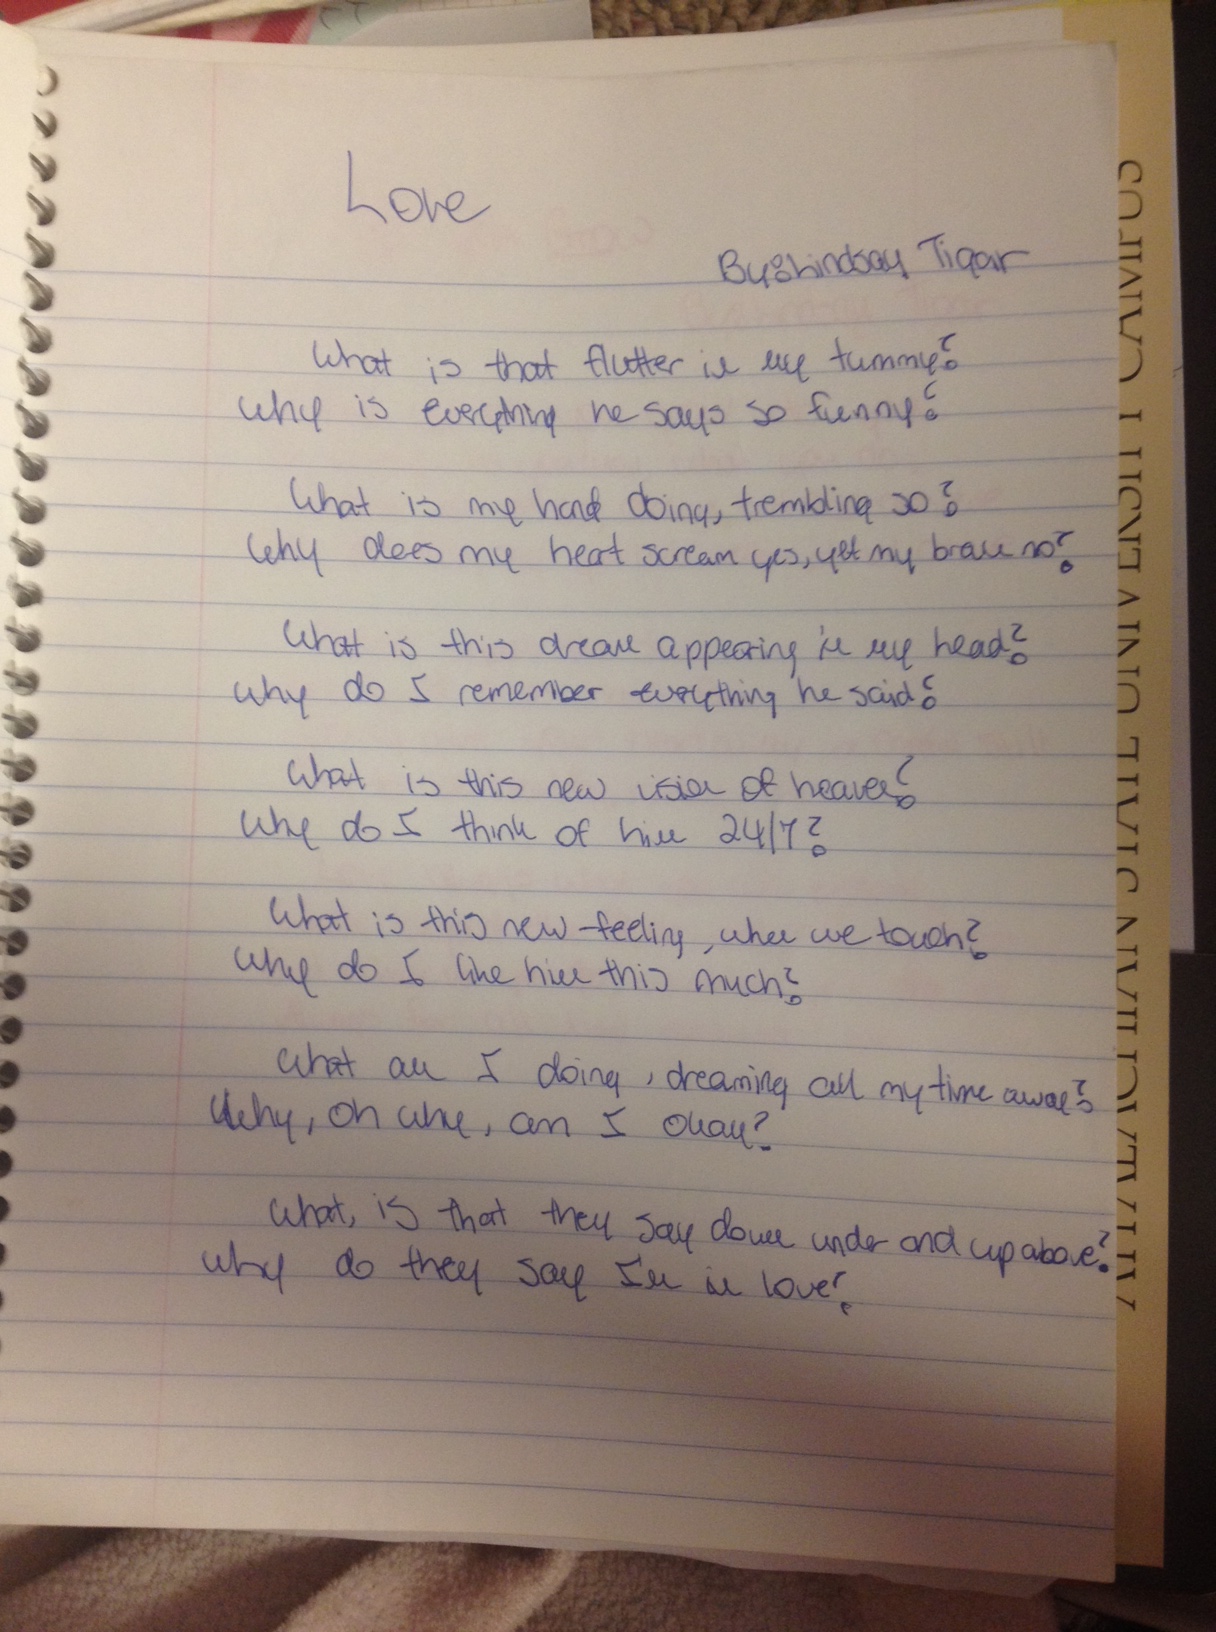 Love
By: Lindsay Tigar
What is that flutter in my tummy?
Why is everything he says so funny?
What is my hand doing, trembling so?
Why does my heart scream yes, yet my brain no?
What is this dream appearing in my head?
Why do I remember everything he said?
What is this new vision of heaven?
Why do I think of him 24/7?
What is this new feeling, when we touch?
Why do I like him this much?
What am I doing, dreaming all my time away?
Why, oh why, am I okay?
What, is that they say down under and up above?
Why do they say I'm in love?